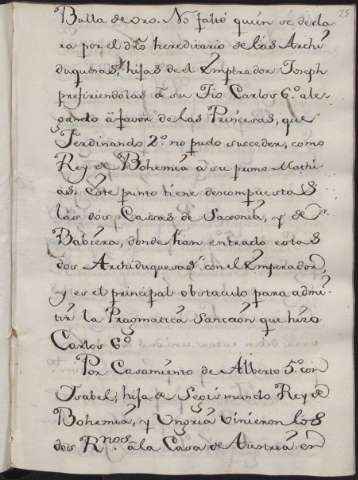 25
Bulla de oro. No faltó quien se decla
ra por el dro hereditario de las Archi
duquesas, hijas de el Emperador Joseph
prefiriendolas a su Tio Carlos 6.º ale
gando a favor de las Princesas, que
Ferdinando 2.º no pudo succeder, como
Rey de Bohemia a su primo Mathi
as. Este punto tiene descompuestas
las dos Casas de Saxonia, y de
Babiera, donde han entrado estas
dos Archiduquesas con el Emperador
y es el principal obstaculo para admi
tir la Pragmatica Sancion que hizo
Carlos 6.º
Por Casamiento de Alberto 5.º con
Isabel, hija de Segismundo Rey de
Bohemia, y Ungria vinieron los
dos Rnos. a la Casa de Austria en